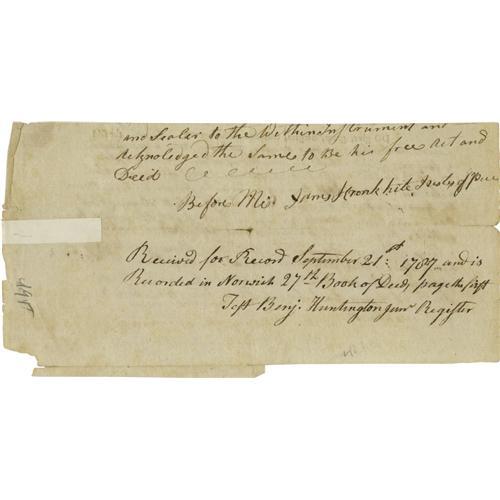 and Sealer to the Within Instrument and
Acknoledged the Same to Be his free Act and
Deed
Before Me. James Kronkhite
Receivd for Record September 21st 1787 and is
Recorded in Norwich 27th Book of Deeds page the first
Test Benj. Huntington Junr Register